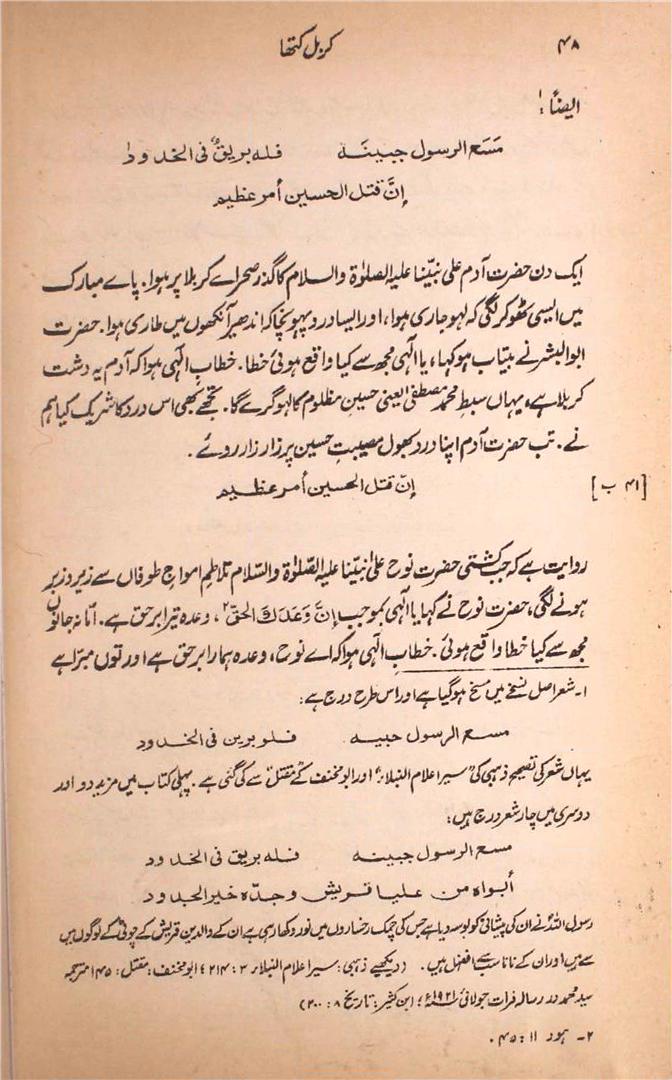 ۴۸ کربل کتھا
ایضاً ۱:
مَسَح الرسول جبینَہ فلہ بریقٌ فی الخدود
إنَّ قتل الحسین أمر عظیم
ایک دن حضرت آدم علی نبیّنا علیہ الصلوٰۃ والسلام کا گذر صحراے کربلا پر ہوا. پاے مبارک
میں ایسی ٹھوکر لگی کہ لہو جاری ہوا، اور ایسا درد پہونچا کہ اندھیرا آنکھوں میں طاری ہوا. حضرت
ابو البشر نے بیتاب ہو کہا، یا الٰہی مجھ سے کیا واقع ہوئی خطا. خطابِ الٰہی ہوا کہ آدم یہ دشت
کربلا ہے، یہاں سبطِ محمد مصطفیٰ یعنی حسینِ مظلوم کا لہو گرے گا. تجھے بھی اس درد کا شریک کیا ہم
نے. تب حضرت آدم اپنا درد بھول مصیبتِ حسین پر زار زار روئے.
إنّ قتل الحسین أمر عظیم [۴۱ ب]
روایت ہے کہ جب کشتی حضرت نوح علیٰ نبیّنا علیہ الصّلوٰۃ والسّلام تلاطمِ امواجِ طوفاں سے زیر و زبر
ہونے لگی، حضرت نوح نے کہا یا الٰہی بموجب إنَّ وَعدَكَ الحَقّ ۲، وعدہ تیرا برحق ہے. امّا نہ جانوں
مجھ سے کیا خطا واقع ہوئی. خطابِ الٰہی ہوا کہ اے نوح، وعدہ ہمارا برحق ہے اور توں مبرّا ہے
۱۔ شعر اصل نسخے میں مسخ ہو گیا ہے اور اس طرح درج ہے:
مسع الرسول حبیہ فلو برین فی الخدود
یہاں شعر کی تصحیح ذہبی کی "سیر اعلام النبلاء" اور ابو مخنف کے مقتل سے کی گئی ہے. پہلی کتاب میں مزید دو اور
دوسری میں چار شعر درج ہیں:
مسع الرسول جبینہ فلہ بریق فی الخدود
أبواہ من علیا قریش وجدّہ خیر الجدود
رسول اللہ نے ان کی پیشانی کو بوسہ دیا ہے جس کی چمک رخساروں میں نور دکھا رہی ہے ان کے والدین قریش کے چوٹی کے لوگوں میں
سے ہیں اور ان کے نانا سب سے افضل ہیں. (دیکھیے ذہبی: سیر اعلام النبلاء ۳: ۲۱۴؛ ابو مخنف: مقتل: ۱۴۵ مترجمہ
سید محمد در رسالہ فرات جولائی ۱۹۲۱ء؛ ابن کثیر: تاریخ ۸: ۲۰۰)
۲۔ ہود ۱۱: ۴۵.